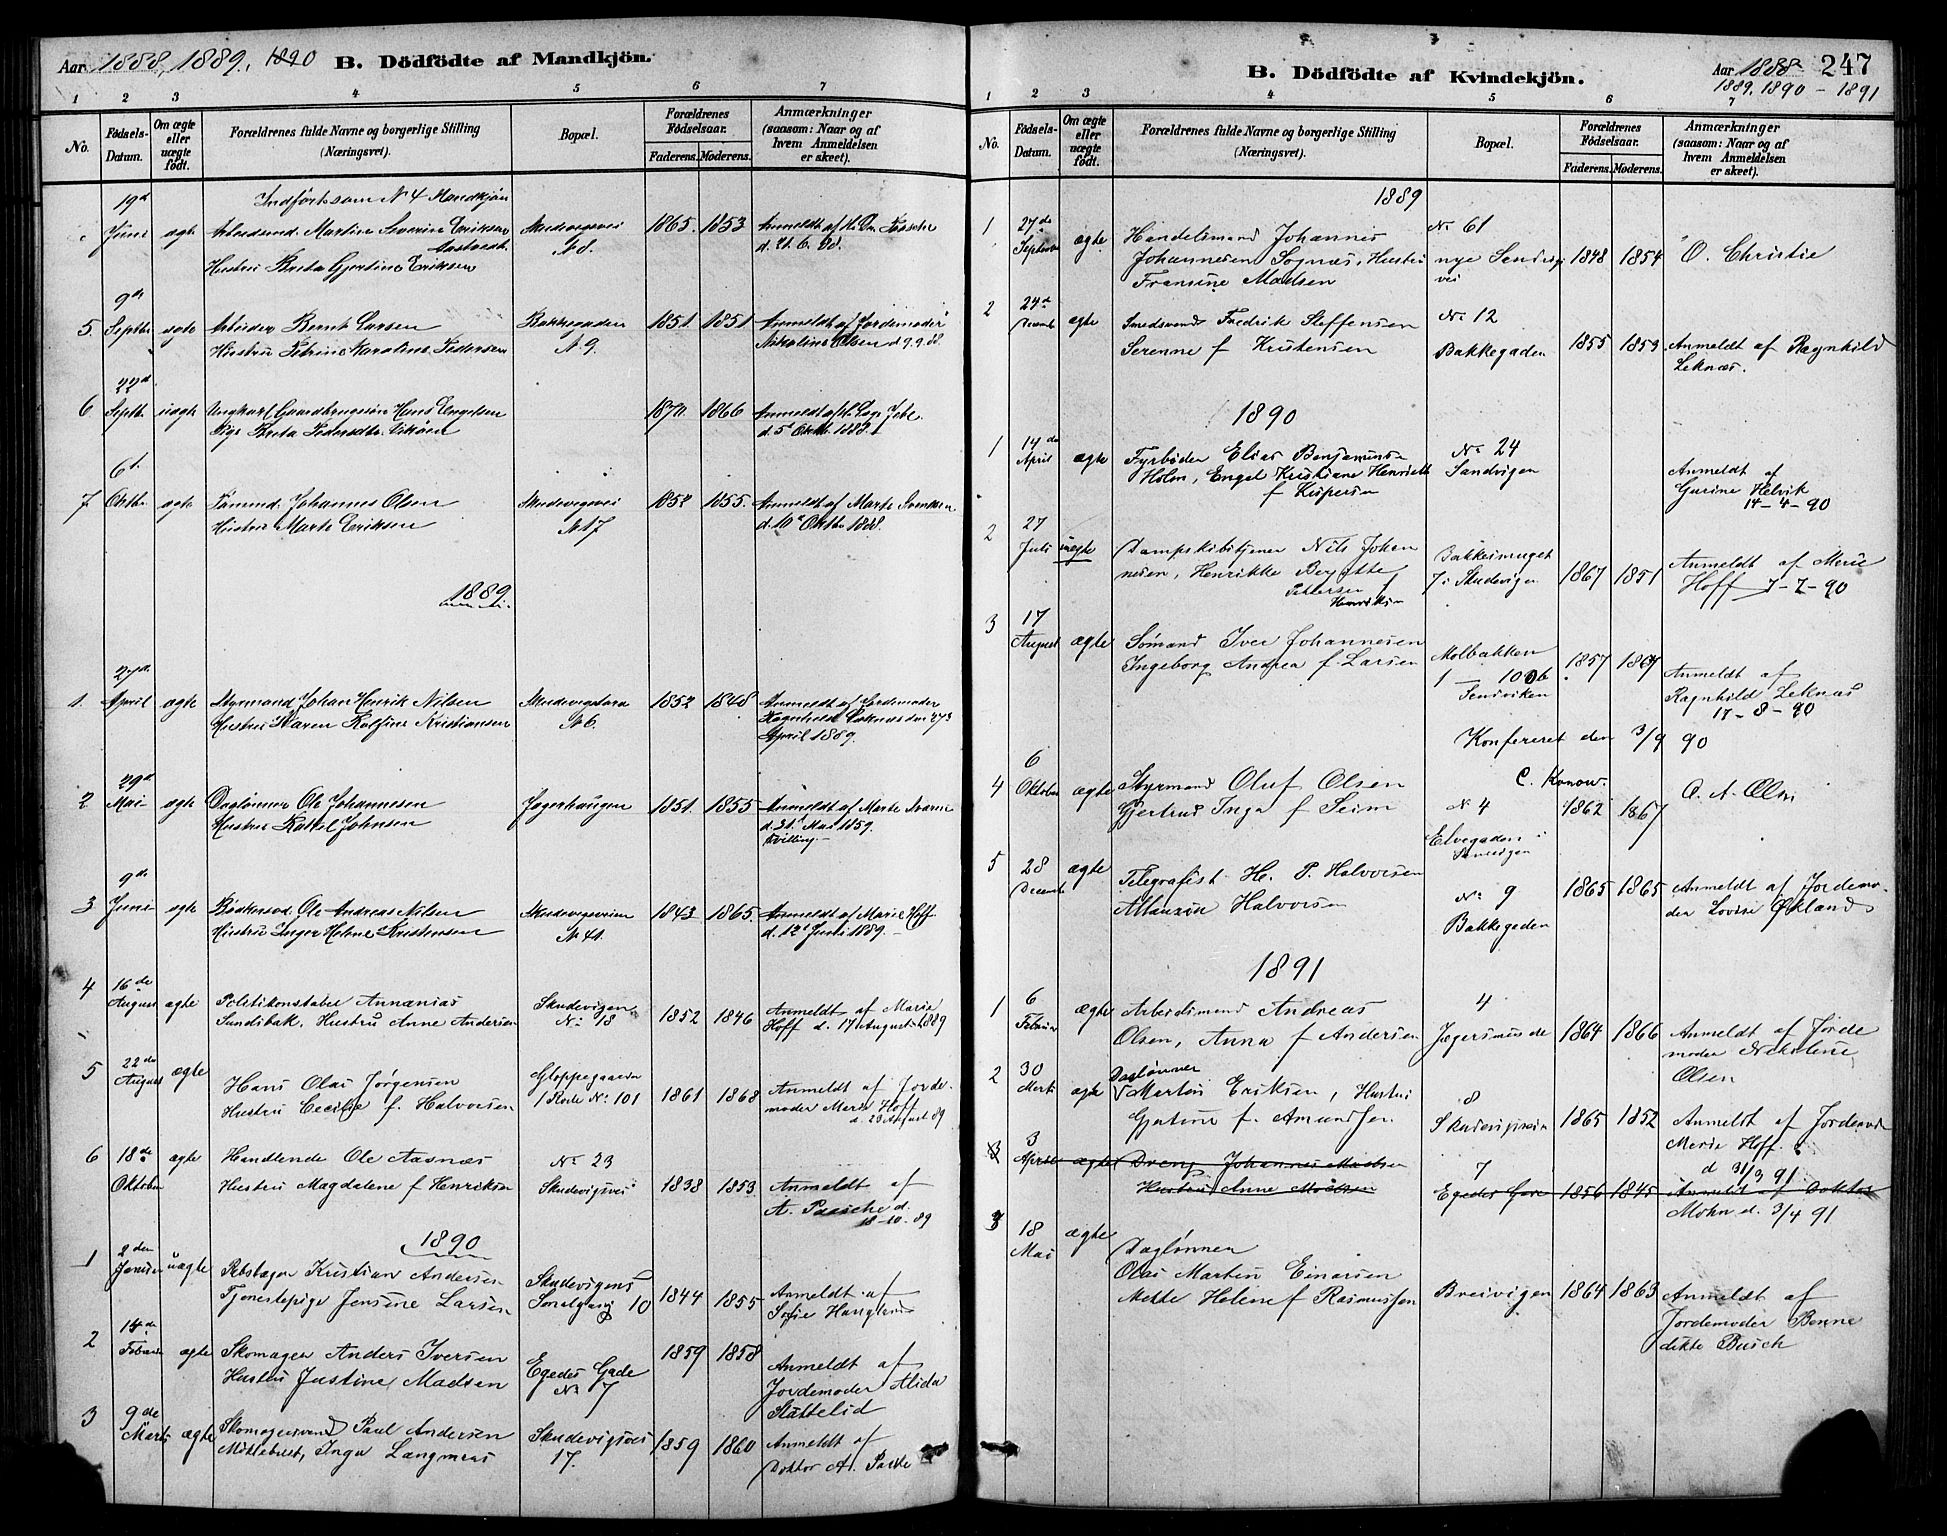 Aar 1888, 1889, 1890 B. Dödfödte af Mandkjön.
1 2 3 4 5 6 7
No.
Födsels-Datum.
Om ægte eller uægte födt.
Forældrenes fulde Navne og borgerlige Stilling
(Næringsvei).
Bopæl.
Forældrenes Födselsaar.
Faderens. Moderens.
Anmærkninger
(saasom: Naar og af
hvem Anmeldelsen
er skeet).
Indfört som N 4 Mandkjön
19d
Juni ægte Arbeidsmd. Martin Severin Eriksen Skudevigsvei 1865. 1853 Anmeldt af
N 8. d. 21. 6. 88.
Hustru Brita Gjertine Eriksen
9de
5. Septbr ægte Arbeider Bernt Larsen Bakkegaden 1851. 1851 Anmeldt af Jordemoder
Hustru Petrine Karoline Pedersen N 9. Nikoline Olsen d 9.9.88.
22d
6 Septbr. uægte Ungkarl Gaardbrugersön Hans Engelsen 1870. 1866 Anmeldt af
Pige Brita Pedersdtr. d. 5t Oktbr. 1888.
6t.
7. Oktbr ægte Sömand Johannes Olsen Skudevigsvei 1852 1855. Anmeldt af Marte Svendsen
Hustru Marte Eriksen N 17 d. 10d Oktbr 1888.
1889
27de
1. April ægte Styrmand Johan Henrik Nilsen 1852 1848 Anmeldt af Jordemoder
Hustru Karen Kristiansen N 6. Ragnhild Leknæs den 27d
April 1889.
29d
2 Mai ægte Daglönner Ole Johannesen Jægerhaugen 1851. 1855 Anmeldt af Marte
Hustru Johnsen d. 31t Mai 1859.
Tvilling.
9de
3 Juni ægte Bödkersvd. Ole Andreas Nilsen Skudevigsveien 1843 1865. Anmeldt af Marie Hoff
Hustru Inger Helene Kristensen No 41. d. 12t Juni 1889.
4 16de Politikonstabel Annanias Skudevigen
August ægte Sundsbak. Hustru Anne Andersen No 18 1852 1846 Anmeldt af Marie
Hoff d. 17 August 1889
5 22de
August ægte Hans Olai Jörgensen Gloppegaarden
Hustru Cecilie f. Halvorsen 1 Rode No: 101 1861 1868 Anmeldt af Jorde-
moder Marie Hoff
d. 23 August 89
6 18de ægte Handlende Ole Aasnæs No 23
Oktober Hustru Magdalene f Henriksen Skudevigsvei 1838 1853 Anmeldt af
A. Paasche d.
18-10-89
1890
1 2den
Januar uægte Rebslager Kristian Andersen Skudevigens
Tjenestepige Jensine Larsen Smalgang 10 1844 1855 Anmeldt af
Sofie
2 14de
Februar ægte Skomager Anders Iversen Egedes Gade 1859 1858 Anmeldt af
Hustru Justine Madsen No 7 Jordemoder Alida
Stattelid
3 9de
Marts ægte Skomagersvend Paul Andersen Skudevigsvei
Mittebust, Inga Langenes 17. 1859 1860 Anmeldt af
Doktor A. Paske
B. Dödfödte af Kvindekjön. Aar 1888 247
1889. 1890 - 1891
1 2 3 4 5 6 7
No.
Födsels-Datum.
Om ægte eller uægte födt.
Forældrenes fulde Navne og borgerlige Stilling
(Næringsvei).
Bopæl.
Forældrenes Födselsaar.
Faderens. Moderens.
Anmærkninger
(saasom: Naar og af
hvem Anmeldelsen
er skeet).
1889
1 27de
September ægte Handelsmand Johannes No 61
Johannesen Sognæs, Hustru nye Sandvigs 1848 1854 O. Christie
Fransine Madsen vei
2 24d
Decemb ægte Smedsvend Fredrik Steffensen No 12
Serenne f Kristensen Bakkegaden 1855 1859 Anmeldt af Ragnhild
Leknæs.
1890
1 14de
April ægte Fyrböder Elias Benjaminsen No 24
Holm, Engel Kristiane Henriette Sandvigen Anmeldt af
f Kaspersen Gurine Helvik
14-4-90
2 27
Juli uægte Dampskibstjener Nils Johan Bakkesmuget
nesen, Henrikke Bergitte 7 i Skudevigen 1867 1851 Anmeldt af Marie
Pettersen f Hoff 7-7-90
Henriksen
3 17
August ægte Sömand Iver Johannesen Molbakken
Ingeborg Andrea f. Larsen 1 — 100b 1857 1864 Anmeldt af
Sandviken Ragnhild Leknæs
17-8-90
Konfereret den 3/9 90
C. Konow.
6
4 Oktober ægte Styrmand Oluf Olsen N. 4 1862 1867 O. A. Olsen
Gjertrud Inga f Seim Elvegaden i
Sandvigen
5 28
Decemb ægte Telegrafist H. P. Halvorsen No 9 1865 1865 Anmeldt af Jordemo-
Halvorsen Bakkegaden der Lovise Økland
1891
1 6
Februar ægte Arbeidsmand Andreas 4
Olsen, Anna f Andersen Jægersmuget 1864 1866 Anmeldt af Jorde
moder Nikoline
Olsen
2 30
Marts ægte Daglönner
Martin Eriksen, Hustru 8
Gjertine f. Amundsen Skudevigsveien 1865 1852 Anmeldt af Jordemoder
Marie Hoff.
d 31/3 91
3 3
April ægte Dreng Johannes Madsen 7
Hustru Anne Madsen Egedes Gade 1856 1845 Anmeldt af Doktor
Mohn d. 3/4 91
3 18
Mai ægte Daglönner
Olai Martin Einarsen
Mette Helene f Rasmussen Breivigen 1864 1863 Anmeldt af
Jordemoder Benne
dikte Busch